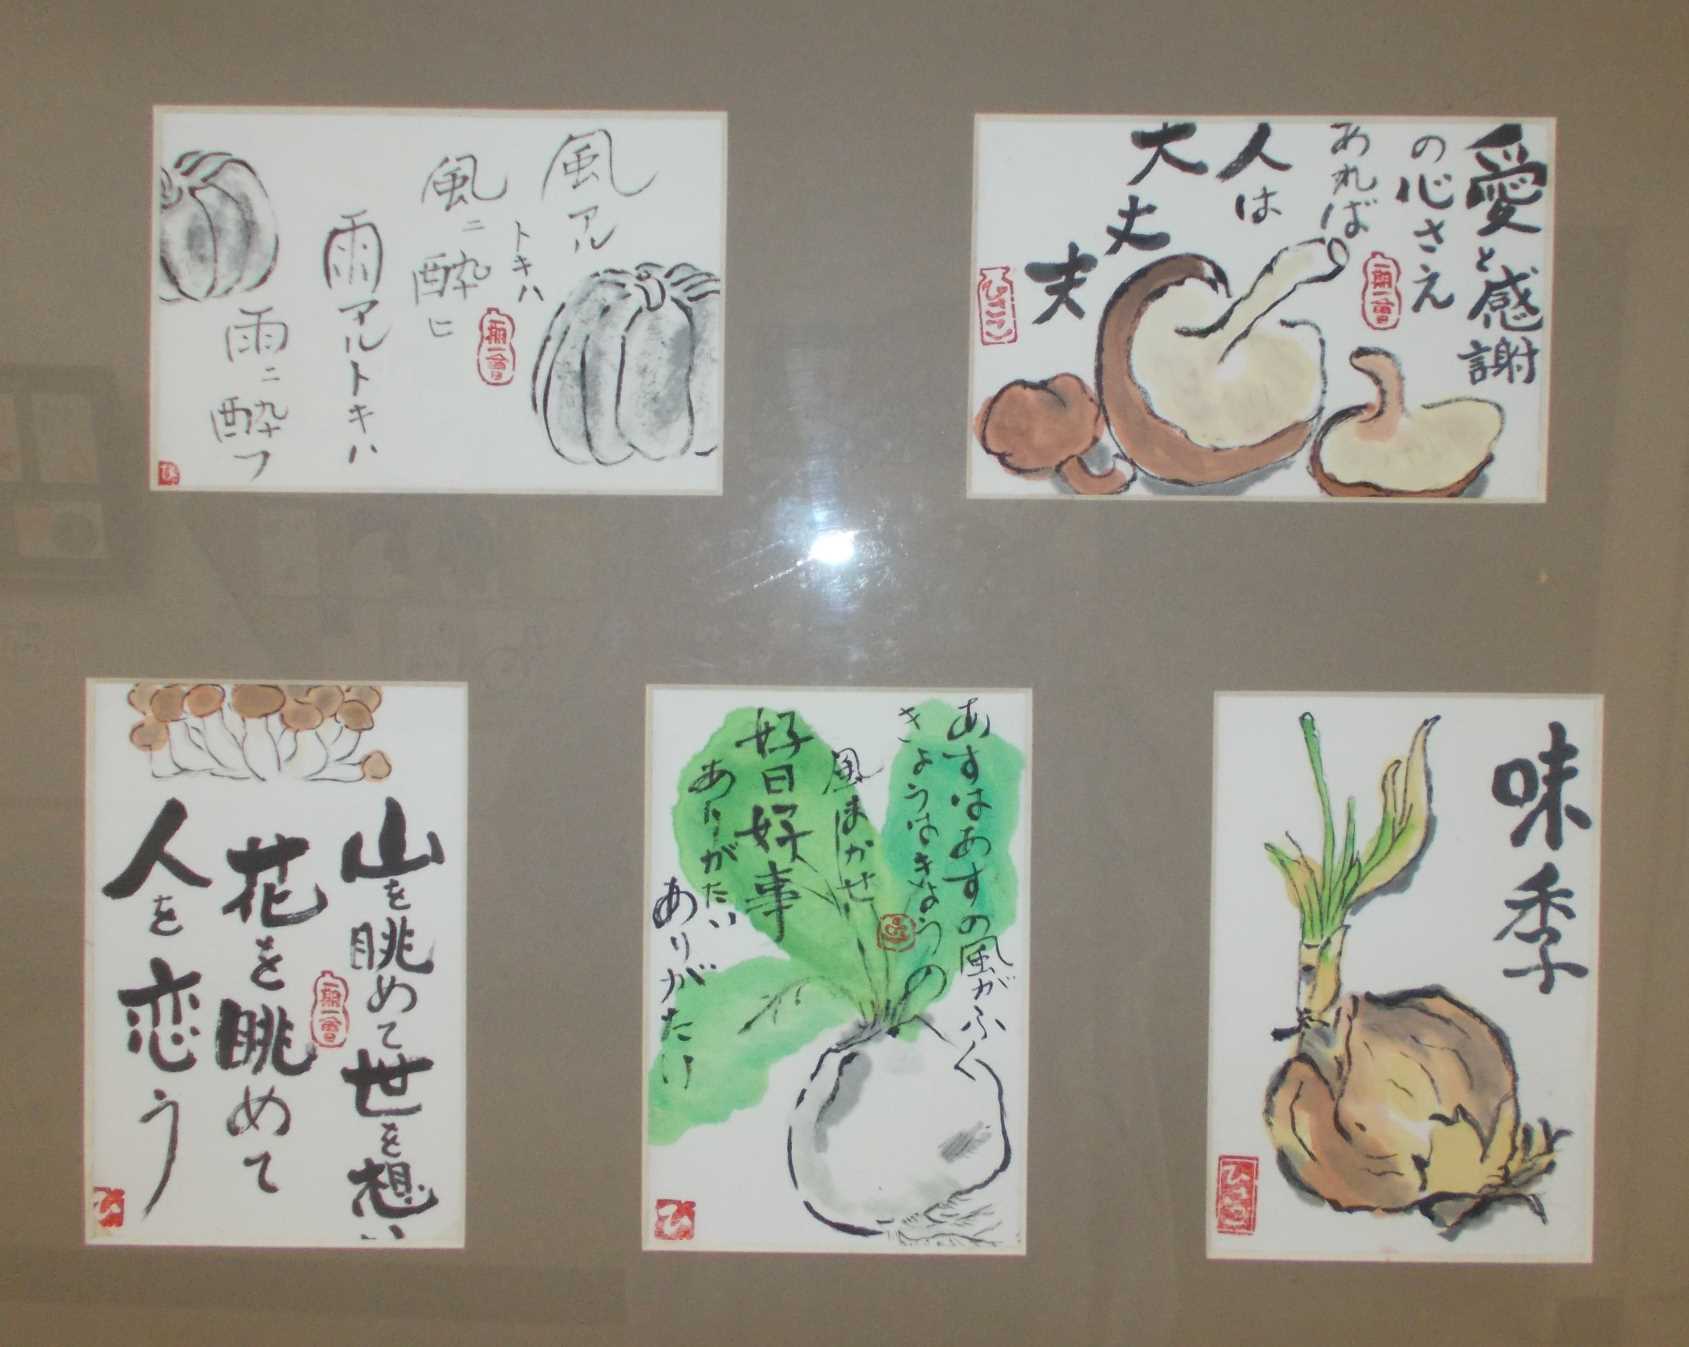 風アル
トキハ
風ニ
酔ヒ
雨アルトキハ
雨ニ
酔フ
愛と感謝
の心さえ
あれば
人は
大丈夫
一期一會
ひさこ
山を眺めて世を想い
花を眺めて
人を恋う
一期一會
ひ
あすはあすの風がふく
きょうはきょうの
風まかせ
好日好事
あたーがたい
ありがたい
ひ
味季